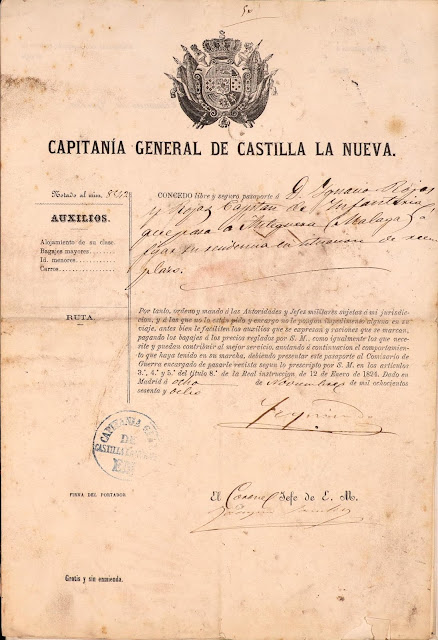 CAPITANÍA GENERAL DE CASTILLA LA NUEVA.
Notado al núm. 8242
AUXILIOS.
Alojamiento de su clase.
Bagajes mayores
Id. menores
Carros
RUTA
CONCEDO libre y seguro pasaporte á D. Ignacio Rojas
y Rojas Capitan de Infantería
que pasa á Antequera (Malaga) á
fijar su residencia en situacion de reem
plazo.
Por tanto, ordeno y mando á las Autoridades y Jefes militares sujetos á mi jurisdic-
cion, y á los que no lo están pido y encargo no le pongan impedimento alguno en su
viaje, antes bien le faciliten los auxilios que se expresan y raciones que se marcan,
pagando los bagajes á los precios reglados por S. M., como igualmente los que nece-
site y puedan contribuir al mejor servicio, anotando á continuacion el comportamien-
to que haya tenido en su marcha, debiendo presentar este pasaporte al Comisario de
Guerra encargado de pasarle revista segun lo prescripto por S. M. en los artículos
3.º, 4.º y 5.º del título 8.º de la Real instruccion de 12 de Enero de 1824. Dado en
Madrid á ocho de Noviembre de mil ochocientos
sesenta y ocho
CAPITANIA GRAL
DE
CASTILLA LA NUEVA
E.M.
FIRMA DEL PORTADOR
El Coronel Jefe de E. M.
Gratis y sin enmienda.